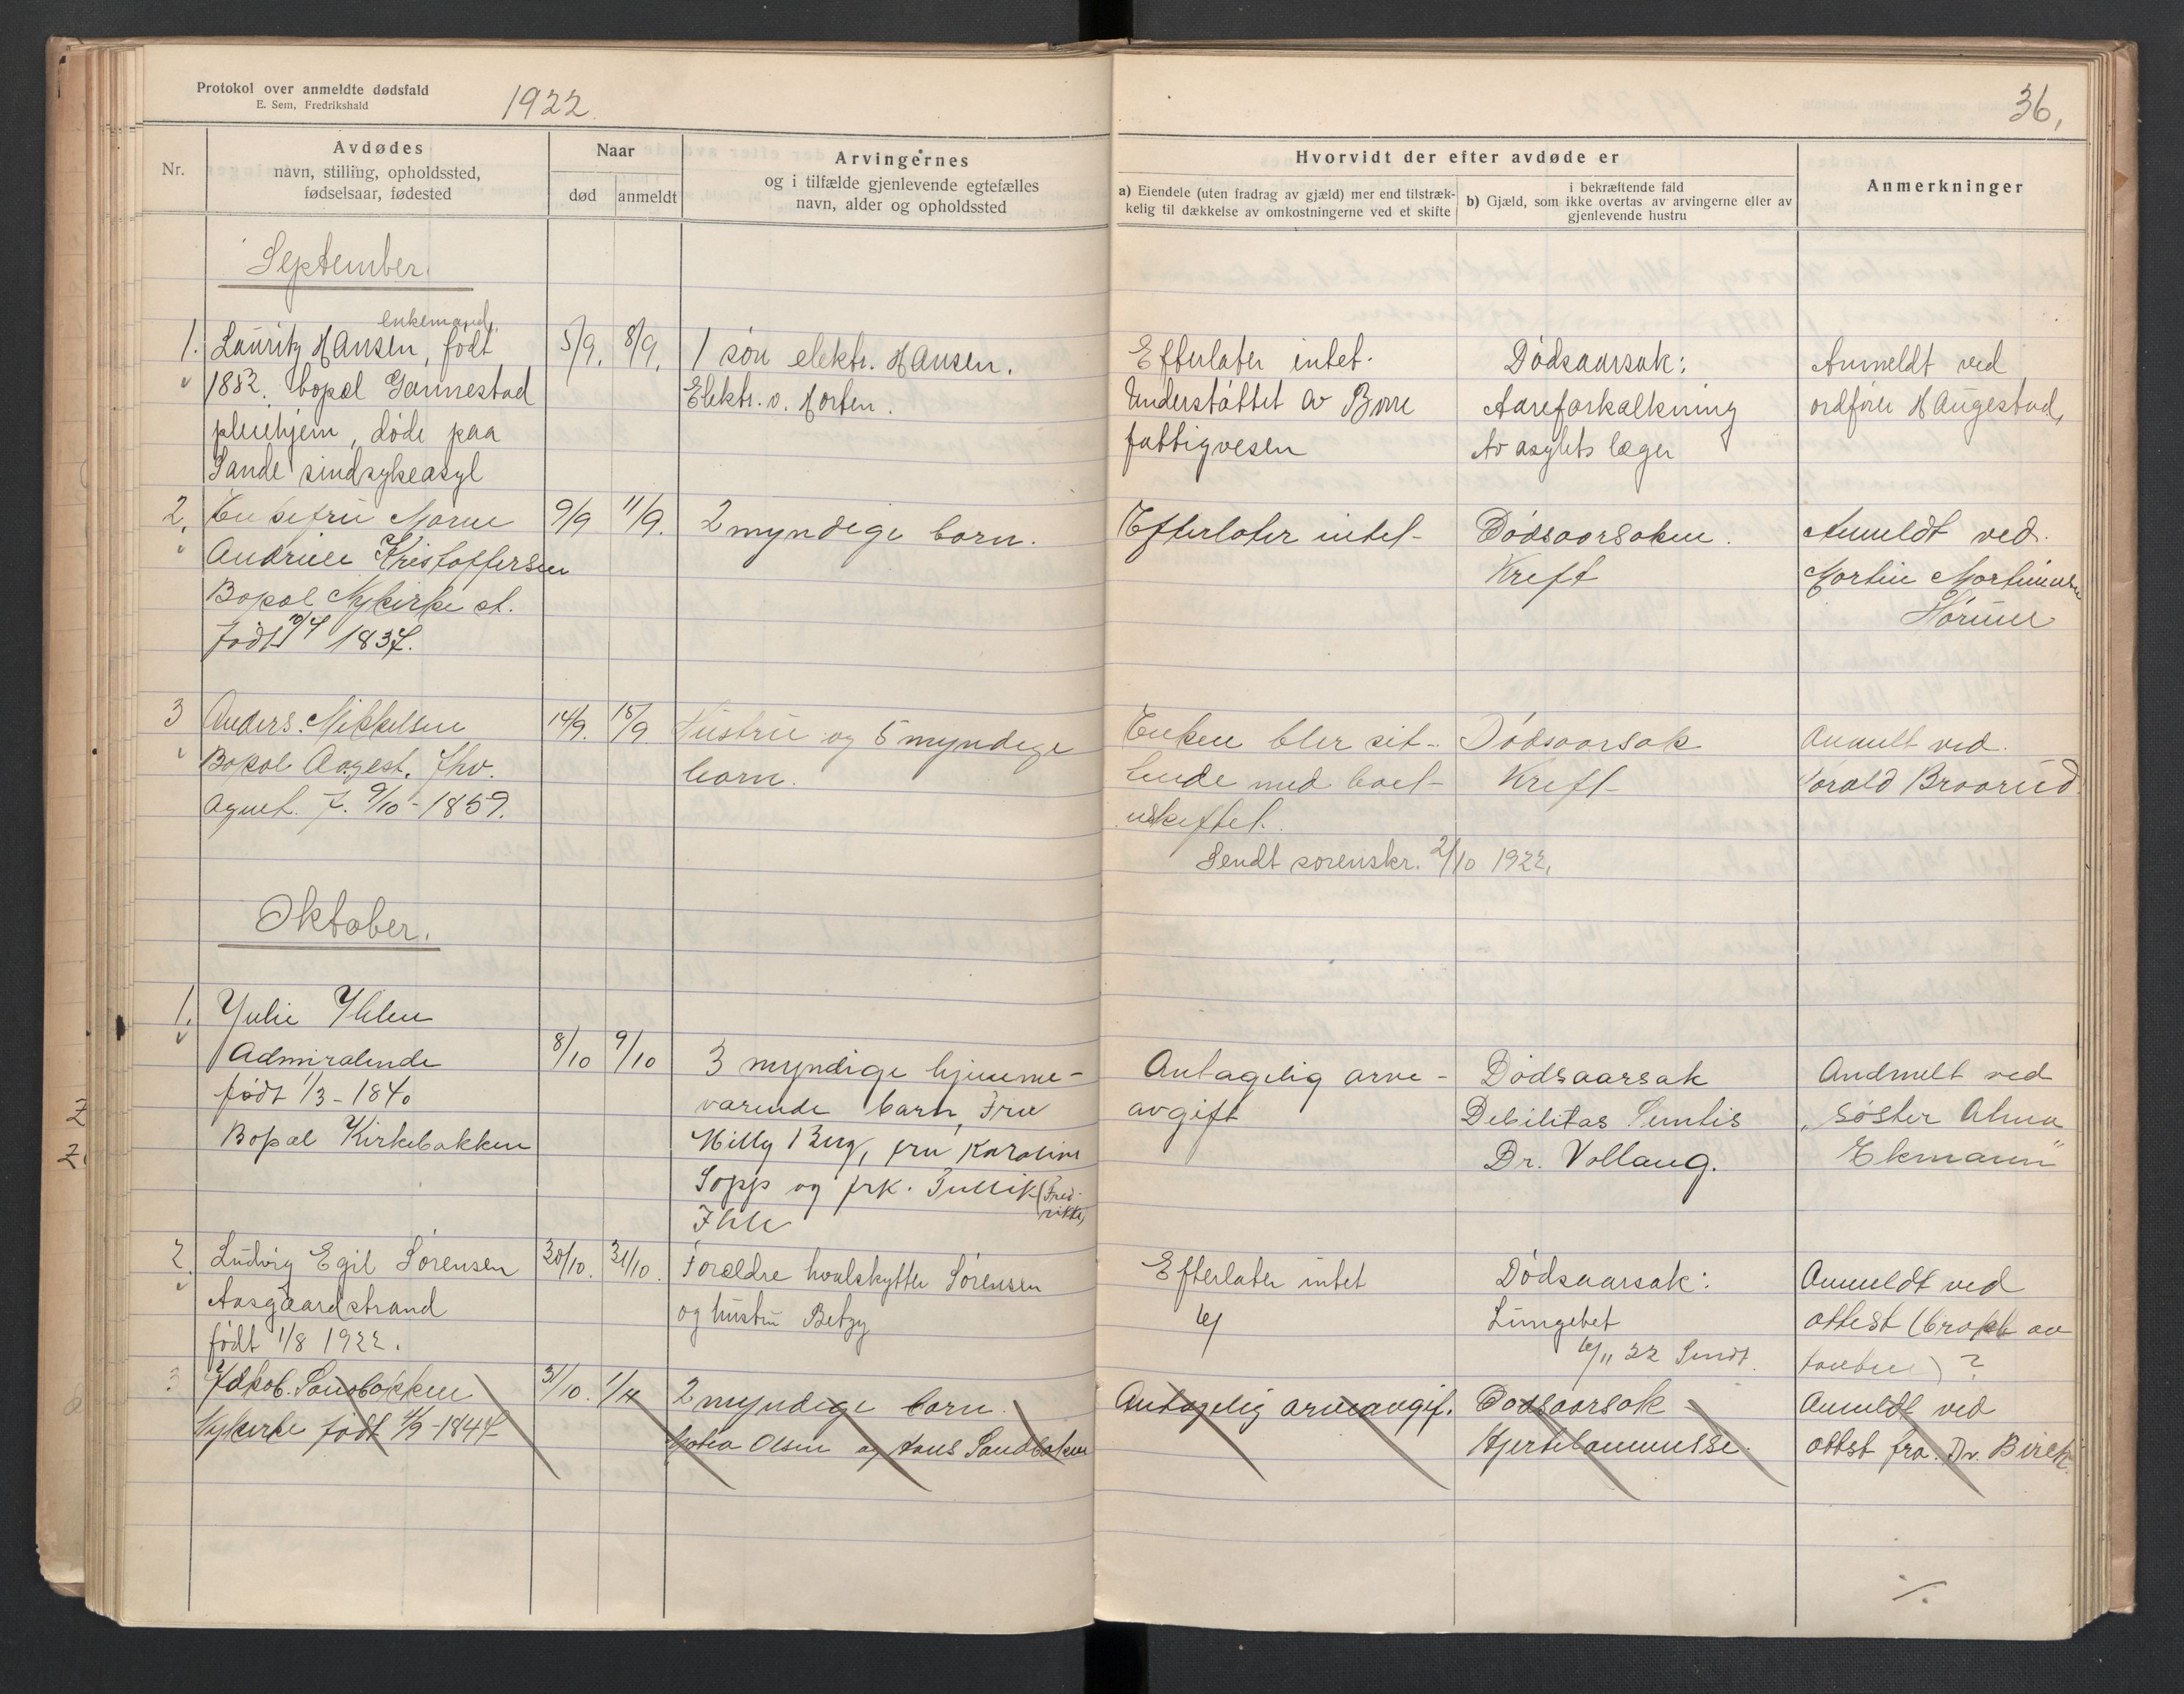 Protokol over anmeldte dødsfald
E. Sem, Fredrikshald
1922.
36,
Nr.
Avdødes
navn, stilling, opholdssted,
fødselsaar, fødested
Naar
død
anmeldt
Arvingernes
og i tilfælde gjenlevende egtefælles
navn, alder og opholdssted
Hvorvidt der efter avdøde er
a) Eiendele (uten fradrag av gjæld) mer end tilstræk-
kelig til dækkelse av omkostningerne ved et skifte
i bekræftende fald
b) Gjæld, som ikke overtas av arvingerne eller av
gjenlevende hustru
Anmerkninger
September.
enkemand,
1. Lauritz Hansen, født
1852. bopæl Gannestad
pleiehjem, døde paa
Sande sindsykeasyl
5/9. 8/9.
1 søn elektr. Hansen.
Elektr. v. Horten.
Efterlater intet.
Understøttet av Borre
fattigvesen
Dødsaarsak:
Aareforkalkning
Av asylets læger
Anmeldt ved
ordfører Haugestad,
2. Enkefru Maren
Andrine Kristoffersen
Bopæl Nykirke st.
Født 10/4 1837.
9/9 11/9.
2 myndige barn.
Efterlater intet
Dødsaarsaken.
Kreft
Anmeldt ved.
Martin Martinsen
3 Anders Mikkelsen
Bopæl Aagest. Thv.
Agnet. f. 9/10-1859.
14/9. 15/9.
Hustru og 5 myndige
barn.
Enken blir sit-
tende med boet
uskiftet.
Sendt sorenskr. 2/10 1922.
Dødsaarsak
Kreft
Anmelt ved.
Torald Braarud
Oktober.
1. Julie Ihlen
Admiralinde
født 1/3-1840
Bopæl Kirkebakken
8/10 9/10
3 myndige hjemme-
værende barn, Frue
Milly Berg, fru Karoline
Sopp og frk. Tullik (Fred-
rikke)
Ihle
Antagelig arve-
avgift
Dødsaarsak
Debilitas Senilis
Dr. Vollaug.
Andmelt ved
"søster Alma
Ekmann"
2. Ludvig Egil Sørensen
Aasgaardstrand
født 1/8 1922.
30/10. 31/10.
Forældre hvalskytter Sørensen
og hustru Betzy
Efterlater intet
Dødsaarsak:
Lungebet
6/11 22 Sendt.
Anmeldt ved
attest (brakt av
tanten) ?
3 Jakob Sandbakken
Nykirke født 4/9-1844
31/10. 1/11
2 myndige barn.
Olsen og Hans Sandbakken
Antagelig arveavgif.
Dødsaarsak
Hjertelammelse.
Anmeldt ved
attst fra. Dr. Birch.
./.